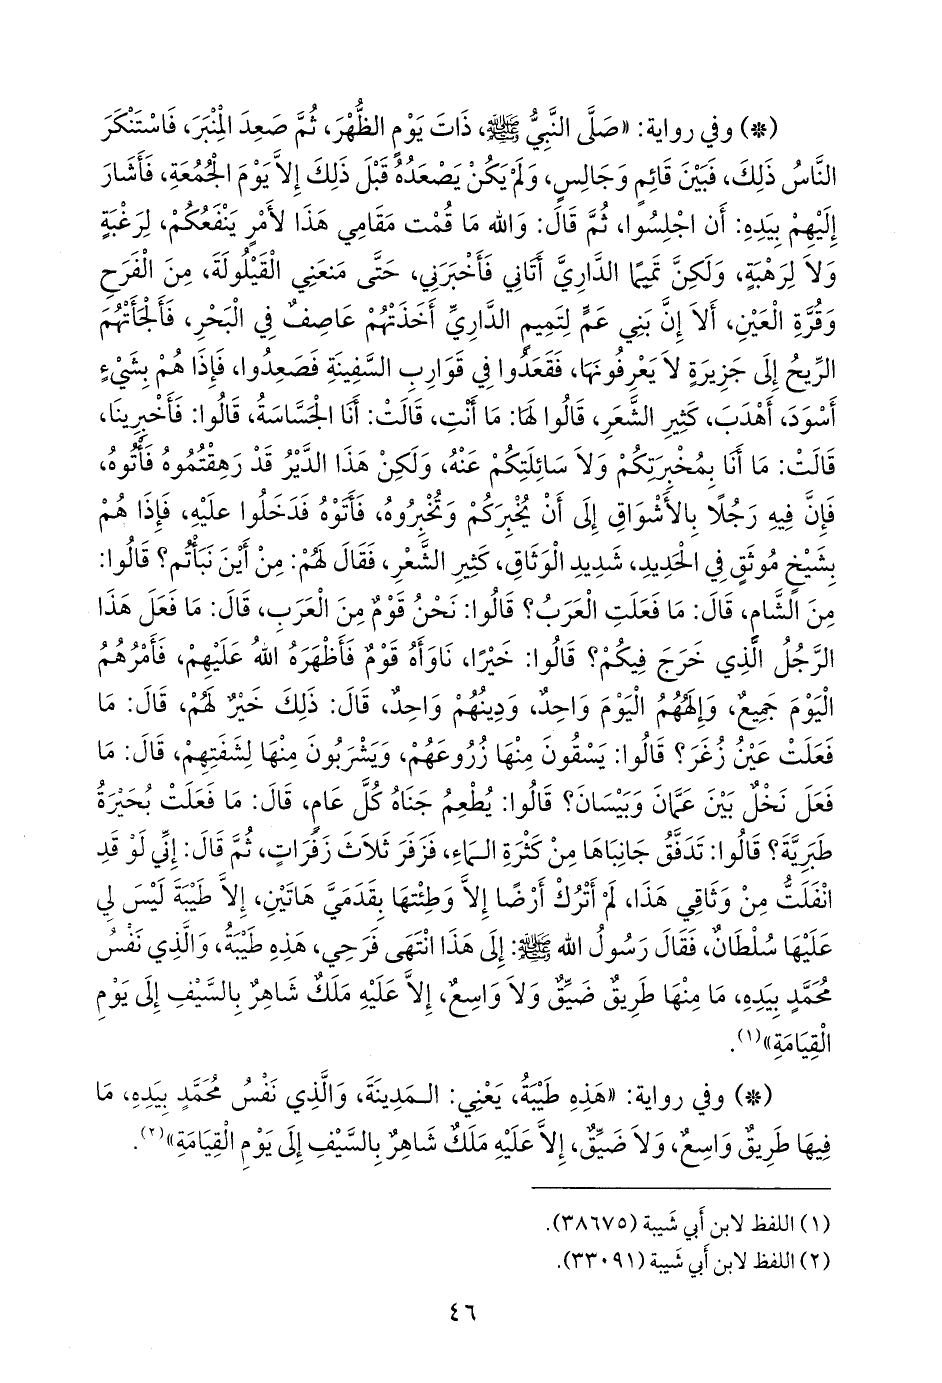 (*) وفي رواية: «صَلَّى النَّبِيُّ ﷺ، ذَاتَ يَوْمٍ الظُّهْرَ، ثُمَّ صَعِدَ المِنْبَرَ، فَاسْتَنْكَرَ
النَّاسُ ذَلِكَ، فَبَيْنَ قَائِمٍ وَجَالِسٍ، وَلَمْ يَكُنْ يَصْعَدُهُ قَبْلَ ذَلِكَ إِلاَّ يَوْمَ الْجُمُعَةِ، فَأَشَارَ
إِلَيْهِمْ بِيَدِهِ: أَن اجْلِسُوا، ثُمَّ قَالَ: وَالله مَا قُمْت مَقَامِي هَذَا لأَمْرٍ يَنْفَعُكُمْ، لِرَغْبَةٍ
وَلاَ لِرَهْبَةٍ، وَلَكِنَّ تَمِيمًا الدَّارِيَّ أَتَانِي فَأَخْبَرَنِي، حَتَّى مَنَعَنِي الْقَيْلُولَةَ، مِنَ الْفَرَحِ
وَقُرَّةِ الْعَيْنِ، أَلاَ إِنَّ بَنِي عَمٍّ لِتَمِيمٍ الدَّارِيِّ أَخَذَتْهُمْ عَاصِفٌ فِي الْبَحْرِ، فَأَلْجَأَتْهُمَ
الرِّيحُ إِلَى جَزِيرَةٍ لاَ يَعْرِفُونَهَا، فَقَعَدُوا فِي قَوَارِبِ السَّفِينَةِ فَصَعِدُوا، فَإِذَا هُمْ بِشَيْءٍ
أَسْوَدَ، أَهْدَبَ، كَثِيرِ الشَّعَرِ، قَالُوا لَهَا: مَا أَنْتِ، قَالَتْ: أَنَا الْجَسَّاسَةُ، قَالُوا: فَأَخْبِرِينَا،
قَالَتْ: مَا أَنَا بِمُخْبِرَتِكُمْ وَلاَ سَائِلَتِكُمْ عَنْهُ، وَلَكِنْ هَذَا الدَّيْرُ قَدْ رَهِقْتُمُوهُ فَأْتُوهُ،
فَإِنَّ فِيهِ رَجُلًا بِالأَشْوَاقِ إِلَى أَنْ يُخْبِرَكُمْ وَتُخْبِرُوهُ، فَأَتَوْهُ فَدَخَلُوا عَلَيْهِ، فَإِذَا هُمْ
بِشَيْخٍ مُوثَقٍ فِي الحَدِيدِ، شَدِيدِ الْوَثَاقِ، كَثِيرِ الشَّعْرِ، فَقَالَ لَهُمْ: مِنْ أَيْنَ نَبَأْتُم؟ قَالُوا:
مِنَ الشَّامِ، قَالَ: مَا فَعَلَتِ الْعَرَبُ؟ قَالُوا: نَحْنُ قَوْمٌ مِنَ الْعَرَبِ، قَالَ: مَا فَعَلَ هَذَا
الرَّجُلُ الَّذِي خَرَجَ فِيكُمْ؟ قَالُوا: خَيْرًا، نَاوَأَهُ قَوْمٌ فَأَظْهَرَهُ اللهُ عَلَيْهِمْ، فَأَمْرُهُمُ
الْيَوْمَ جَمِيعٌ، وَإِلَهُهُمُ الْيَوْمَ وَاحِدٌ، وَدِينُهُمْ وَاحِدٌ، قَالَ: ذَلِكَ خَيْرٌ لَهُمْ، قَالَ: مَا
فَعَلَتْ عَيْنُ زُغَرَ؟ قَالُوا: يَسْقُونَ مِنْهَا زُرُوعَهُمْ، وَيَشْرَبُونَ مِنْهَا لِشَفَتِهِمْ، قَالَ: مَا
فَعَلَ نَخْلٌ بَيْنَ عَمَّانَ وَبَيْسَانَ؟ قَالُوا: يُطْعِمُ جَنَاهُ كُلَّ عَامٍ، قَالَ: مَا فَعَلَتْ بُحَيْرَةُ
طَبَرِيَّةَ؟ قَالُوا: تَدَفَّقُ جَانِبَاهَا مِنْ كَثْرَةِ المَاءِ، فَزَفَرَ ثَلاَثَ زَفَرَاتٍ، ثُمَّ قَالَ: إِنِّي لَوْ قَدِ
انْفَلَتُّ مِنْ وَثَاقِي هَذَا، لَمْ أَتْرُكْ أَرْضًا إِلاَّ وَطِئْتهَا بِقَدَمَيَّ هَاتَيْنِ، إِلاَّ طَيْبَةَ لَيْسَ لِي
عَلَيْهَا سُلْطَانٌ، فَقَالَ رَسُولُ الله ﷺ: إِلَى هَذَا انْتَهَى فَرَحِي، هَذِهِ طَيْبَةُ، وَالَّذِي نَفْسُ
مُحَمَّدٍ بِيَدِهِ، مَا مِنْهَا طَرِيقٌ ضَيِّقٌ وَلاَ وَاسِعٌ، إِلاَّ عَلَيْهِ مَلَكٌ شَاهِرٌ بِالسَّيْفِ إِلَى يَوْمِ
الْقِيَامَةِ»(١).
(*) وفي رواية: «هَذِهِ طَيْبَةُ، يَعْنِي: المَدِينَةَ، وَالَّذِي نَفْسُ مُحَمَّدٍ بِيَدِهِ، مَا
فِيهَا طَرِيقٌ وَاسِعٌ، وَلاَ ضَيِّقٌ، إِلاَّ عَلَيْهِ مَلَكٌ شَاهِرٌ بِالسَّيْفِ إِلَى يَوْمِ الْقِيَامَةِ»(٢).
(١) اللفظ لابن أَبي شَيبة (٣٨٦٧٥).
(٢) اللفظ لابن أَبي شَيبة (٣٣٠٩١).
٤٦